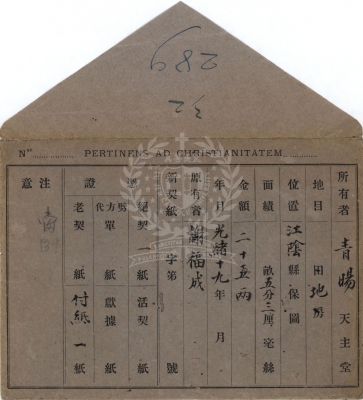 289
32
N° PERTINENS AD CHRISTIANITATEM
所有者 青暘 天主堂
地目 田地房
位置 江陰縣 保圖
面績 畝五分三厘毫絲
金額 二十五兩
年月 光緒十九年 月
原有者 謝福成
新契紙 字第 號
憑證
絕契 一紙 活契 紙
方單 紙 獻據 紙
老契 紙 付紙 一紙
注意